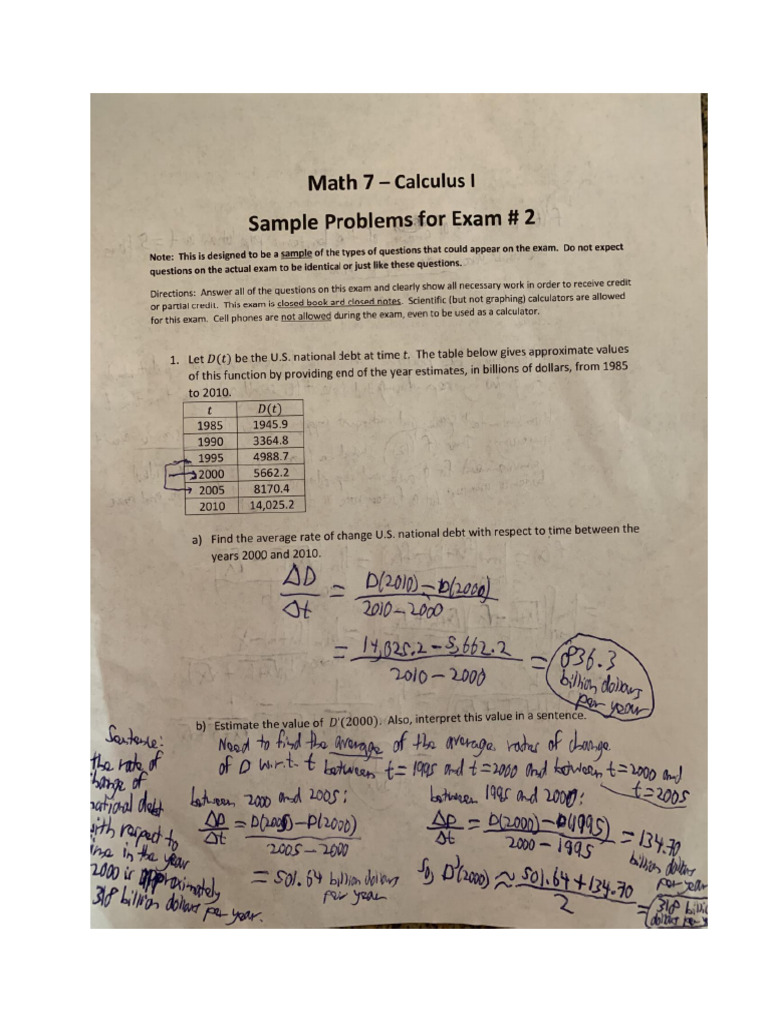 Math 7 – Calculus I
Sample Problems for Exam # 2
Note: This is designed to be a sample of the types of questions that could appear on the exam. Do not expect
questions on the actual exam to be identical or just like these questions.
Directions: Answer all of the questions on this exam and clearly show all necessary work in order to receive credit
or partial credit. This exam is closed book and closed notes. Scientific (but not graphing) calculators are allowed
for this exam. Cell phones are not allowed during the exam, even to be used as a calculator.
1. Let D(t) be the U.S. national debt at time t. The table below gives approximate values
of this function by providing end of the year estimates, in billions of dollars, from 1985
to 2010.
t D(t)
1985 1945.9
1990 3364.8
1995 4988.7
2000 5662.2
2005 8170.4
2010 14,025.2
a) Find the average rate of change U.S. national debt with respect to time between the
years 2000 and 2010.
ΔD/Δt = D(2010)-D(2000)/2010-2000
= 14,025.2-5,662.2/2010-2000 = 836.3
billion dollars
per year
b) Estimate the value of D'(2000). Also, interpret this value in a sentence.
Need to find the average of the average rates of change
of D w.r.t. t between t=1995 and t=2000 and between t=2000 and
t=2005
between 2000 and 2005:
ΔD/Δt = D(2005)-D(2000)/2005-2000
= 501.64 billion dollars
per year
between 1995 and 2000:
ΔD/Δt = D(2000)-D(1995)/2000-1995 = 134.70
billion dollars
per year
So, D'(2000) ≈ 501.64+134.70/2
= 318 billi
dollars per y
Sentence:
the rate of
hange of
national debt
with respect to
time in the year
2000 is approximately
318 billion dollars per year.